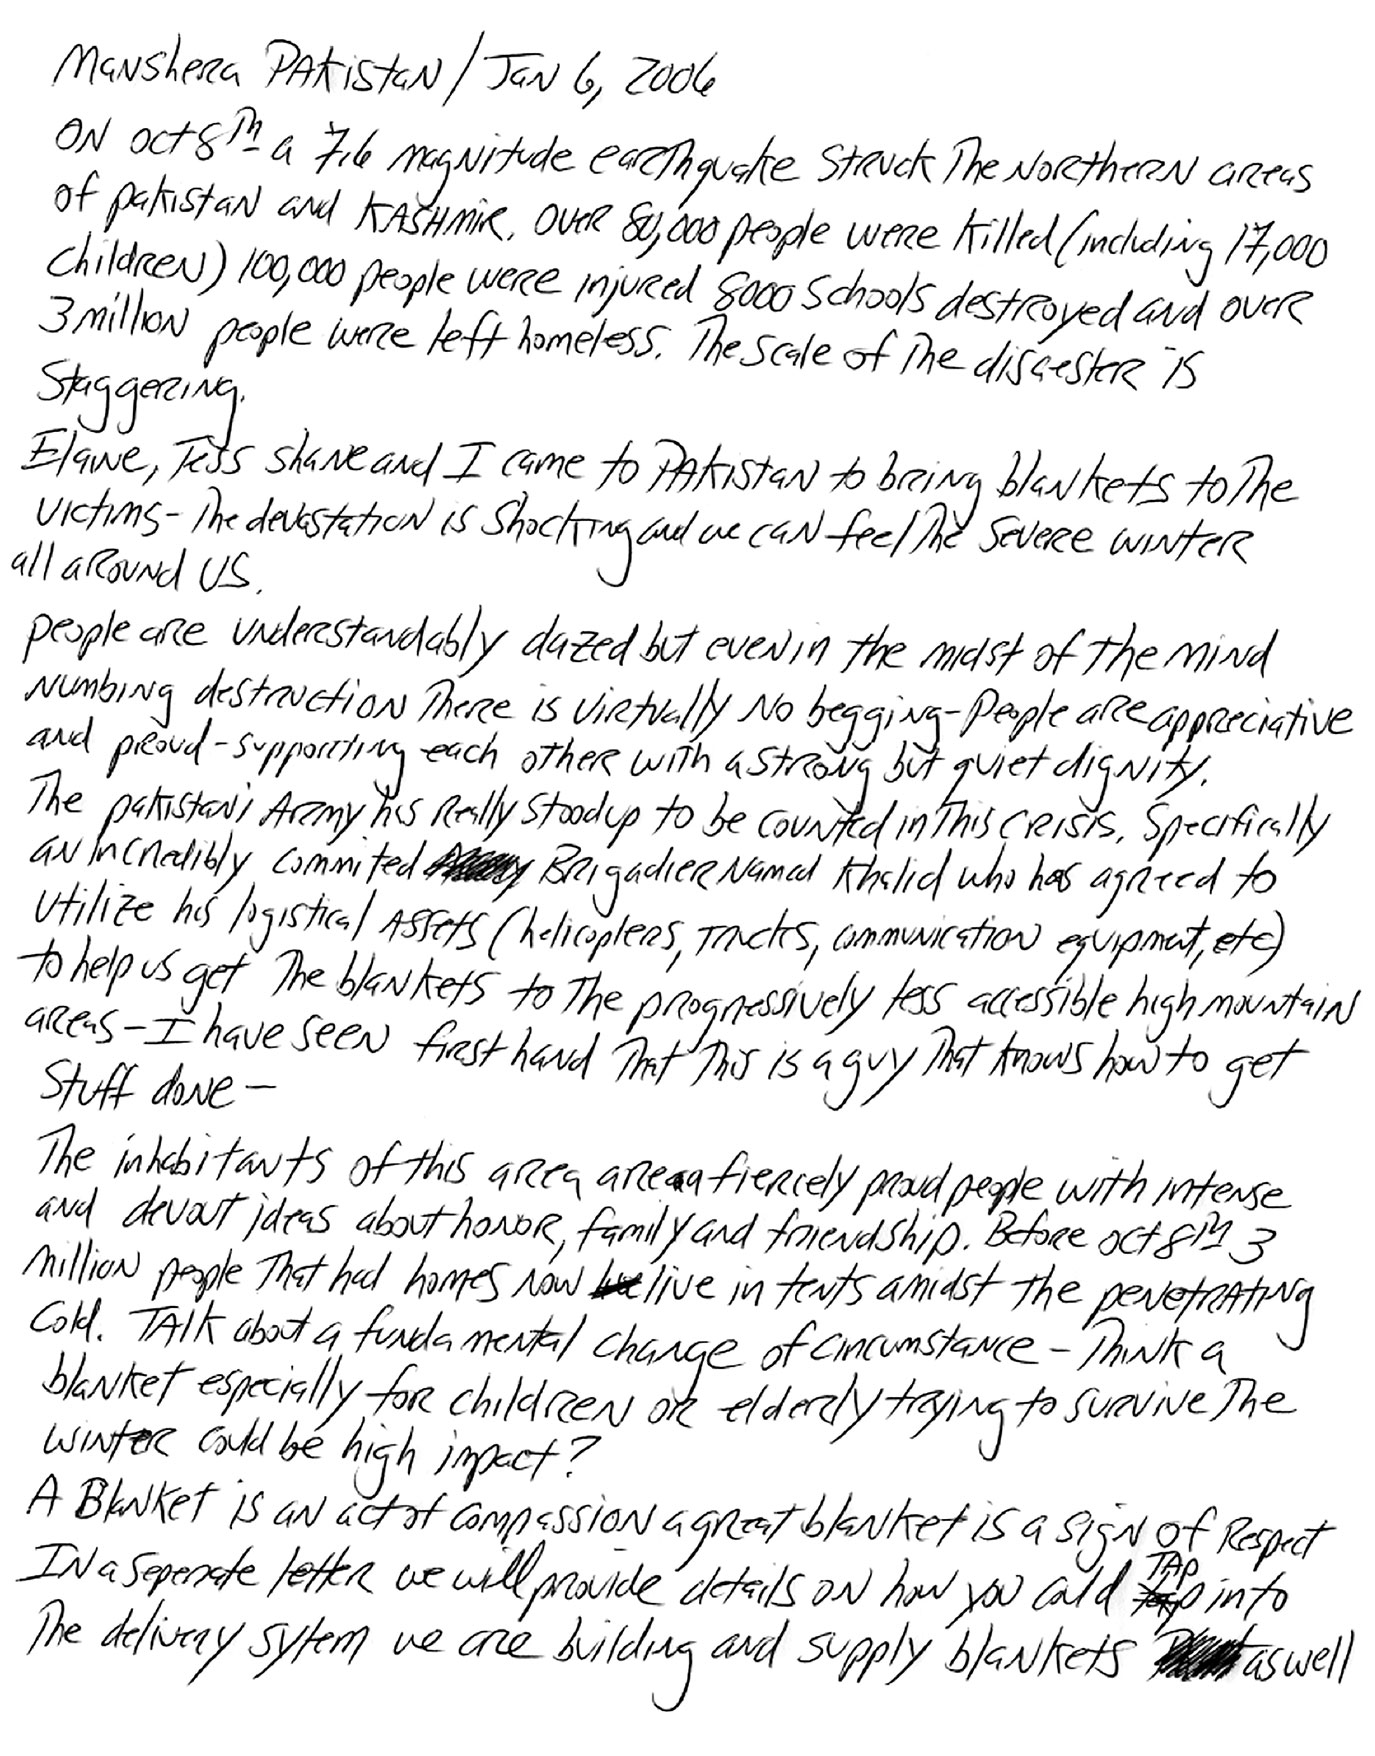 Manshera Pakistan / Jan 6, 2006
On oct 8th a 7.6 magnitude earthquake struck The Northern areas
of pakistan and Kashmir. Over 80,000 people were killed (including 17,000
children) 100,000 people were injured 8000 schools destroyed and over
3 million people were left homeless. The scale of The disaester is
staggering.
Elaine, Tess Shane and I came to Pakistan to bring blankets to The
victims - The devastation is shocking and we can feel The severe winter
all around us.
people are understandably dazed but even in the midst of the mind
numbing destruction There is virtually no begging - People are appreciative
and proud - supporting each other with a strong but quiet dignity.
The pakistani Army his really stood up to be counted in This crisis. Specifically
an incredibly commited Brigadier named Khalid who has agreed to
utilize his logistical assets (helicopters, trucks, communication equipment, etc)
to help us get The blankets to The progressively less accessible high mountain
areas - I have seen first hand That This is a guy That knows how to get
stuff done -
The inhabitants of this area are a fiercely proud people with intense
and devout ideas about honor, family and friendship. Before oct 8th 3
million people That had homes now live in tents amidst the penetrating
cold. Talk about a fundamental change of circumstance - Think a
blanket especially for children or elderly trying to survive The
winter could be high impact?
A Blanket is an act of compassion a great blanket is a sign of Respect
In a seperate letter we will provide details on how you could TAP into
The delivery sytem we are building and supply blankets as well